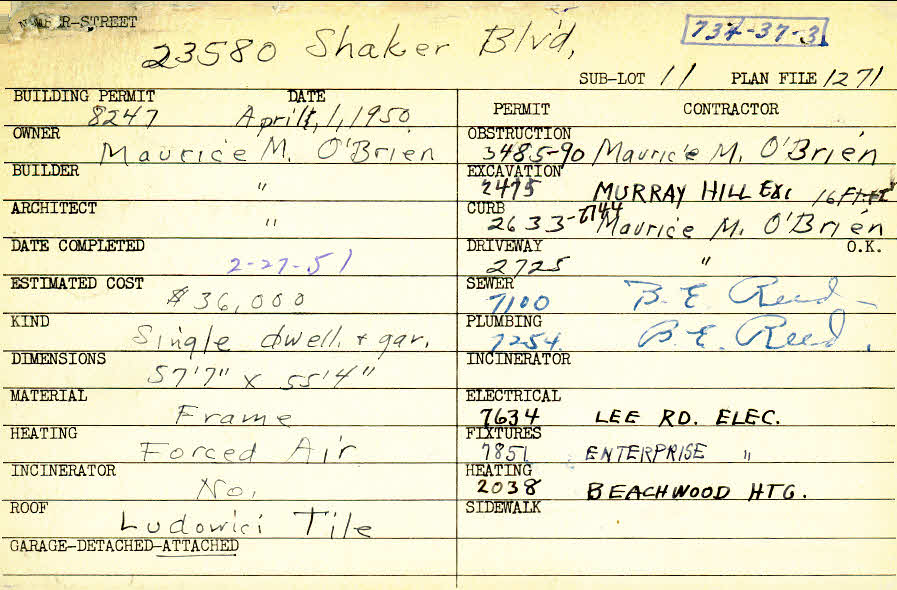 NUMBER-STREET
23580 Shaker Blvd,
734-37-3
SUB-LOT 11 PLAN FILE 1271
BUILDING PERMIT DATE
8247 April, 1, 1950
OWNER
Maurice M. O'Brien
BUILDER
"
ARCHITECT
"
DATE COMPLETED
2-27-51
ESTIMATED COST
$36,000
KIND
Single dwell. + gar.
DIMENSIONS
57'7" x 55'4"
MATERIAL
Frame
HEATING
Forced Air
INCINERATOR
No.
ROOF
Ludowici Tile
GARAGE-DETACHED-ATTACHED
PERMIT CONTRACTOR
OBSTRUCTION
3485-90 Maurice M. O'Brien
EXCAVATION
2475 MURRAY HILL EXC 16 Ft
CURB
2633-2744 Maurice M. O'Brien
DRIVEWAY O.K.
2725 "
SEWER
7100 B. E. Reed
PLUMBING
7254 B. E. Reed.
INCINERATOR
ELECTRICAL
7634 LEE RD. ELEC.
FIXTURES
7851 ENTERPRISE "
HEATING
2038 BEACHWOOD HTG.
SIDEWALK